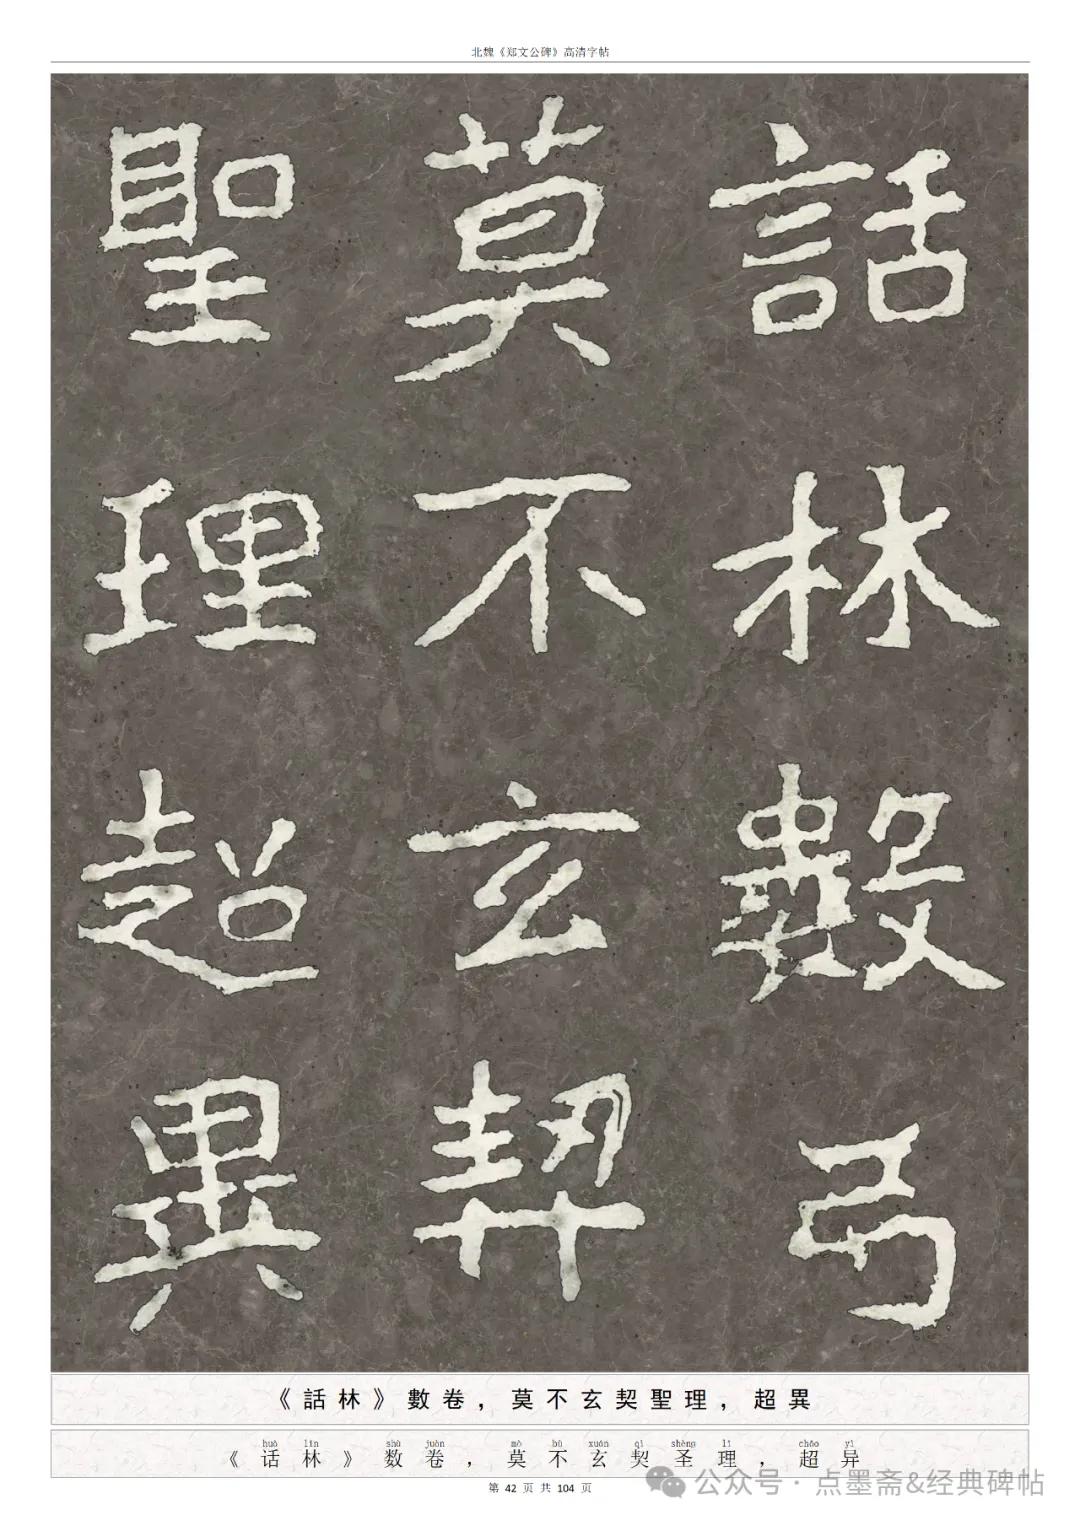 北魏《郑文公碑》高清字帖
話林數弓
莫不玄契
聖理超異
《話林》數卷，莫不玄契聖理，超異
huà lín shù juàn mò bù xuán qì shèng lǐ chāo yì
《话林》数卷，莫不玄契圣理，超异
第 42 页 共 104 页
公众号·点墨斋&经典碑帖